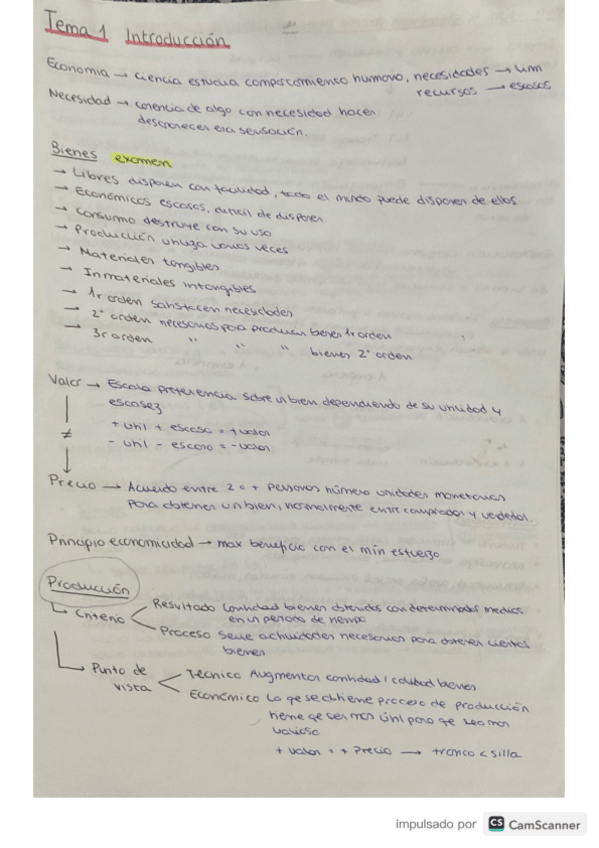 Tema 1 Introducción
Economia → Ciencia estudia comportamiento humano, necesidades → lim
recursos → escasos
Necesidad → carencia de algo con necesidad hacer
desaparecer esa sensación.
Bienes examen
→ Libres disponen con facilidad, todo el mundo puede disponen de ellos
→ Económicos escasos, dificil de disponer
→ Consumo destruye con su uso
→ Producción utiliza varias veces
→ Materiales tangibles
→ Inmateriales intangibles
→ 1r orden satisfacen necesidades
→ 2º orden necesarios para producir bienes 1r orden
→ 3r orden " " " bienes 2º orden
Valor → Escala preferencia sobre un bien dependiendo de su utilidad y
escasez
+ útil + escaso = + valor
- útil - escaso = - valor
≠
Precio → Acuerdo entre 2 o + personas número unidades monetarias
para obtener un bien, normalmente entre comprador y vendedor
Principio economicidad → max beneficio con el mín esfuerzo
Producción
Criterio
Resultado Cantidad bienes obtenidos con determinados medios
en un periodo de tiempo
Proceso Serie actividades necesarias para obtener ciertos
bienes
Punto de vista
Técnico Augmentar cantidad / calidad bienes
Económico Lo qe se obtiene proceso de producción
tiene qe ser mas útil para qe sea mas
valioso
+ valor = + Precio → tronco < silla
impulsado por CS CamScanner